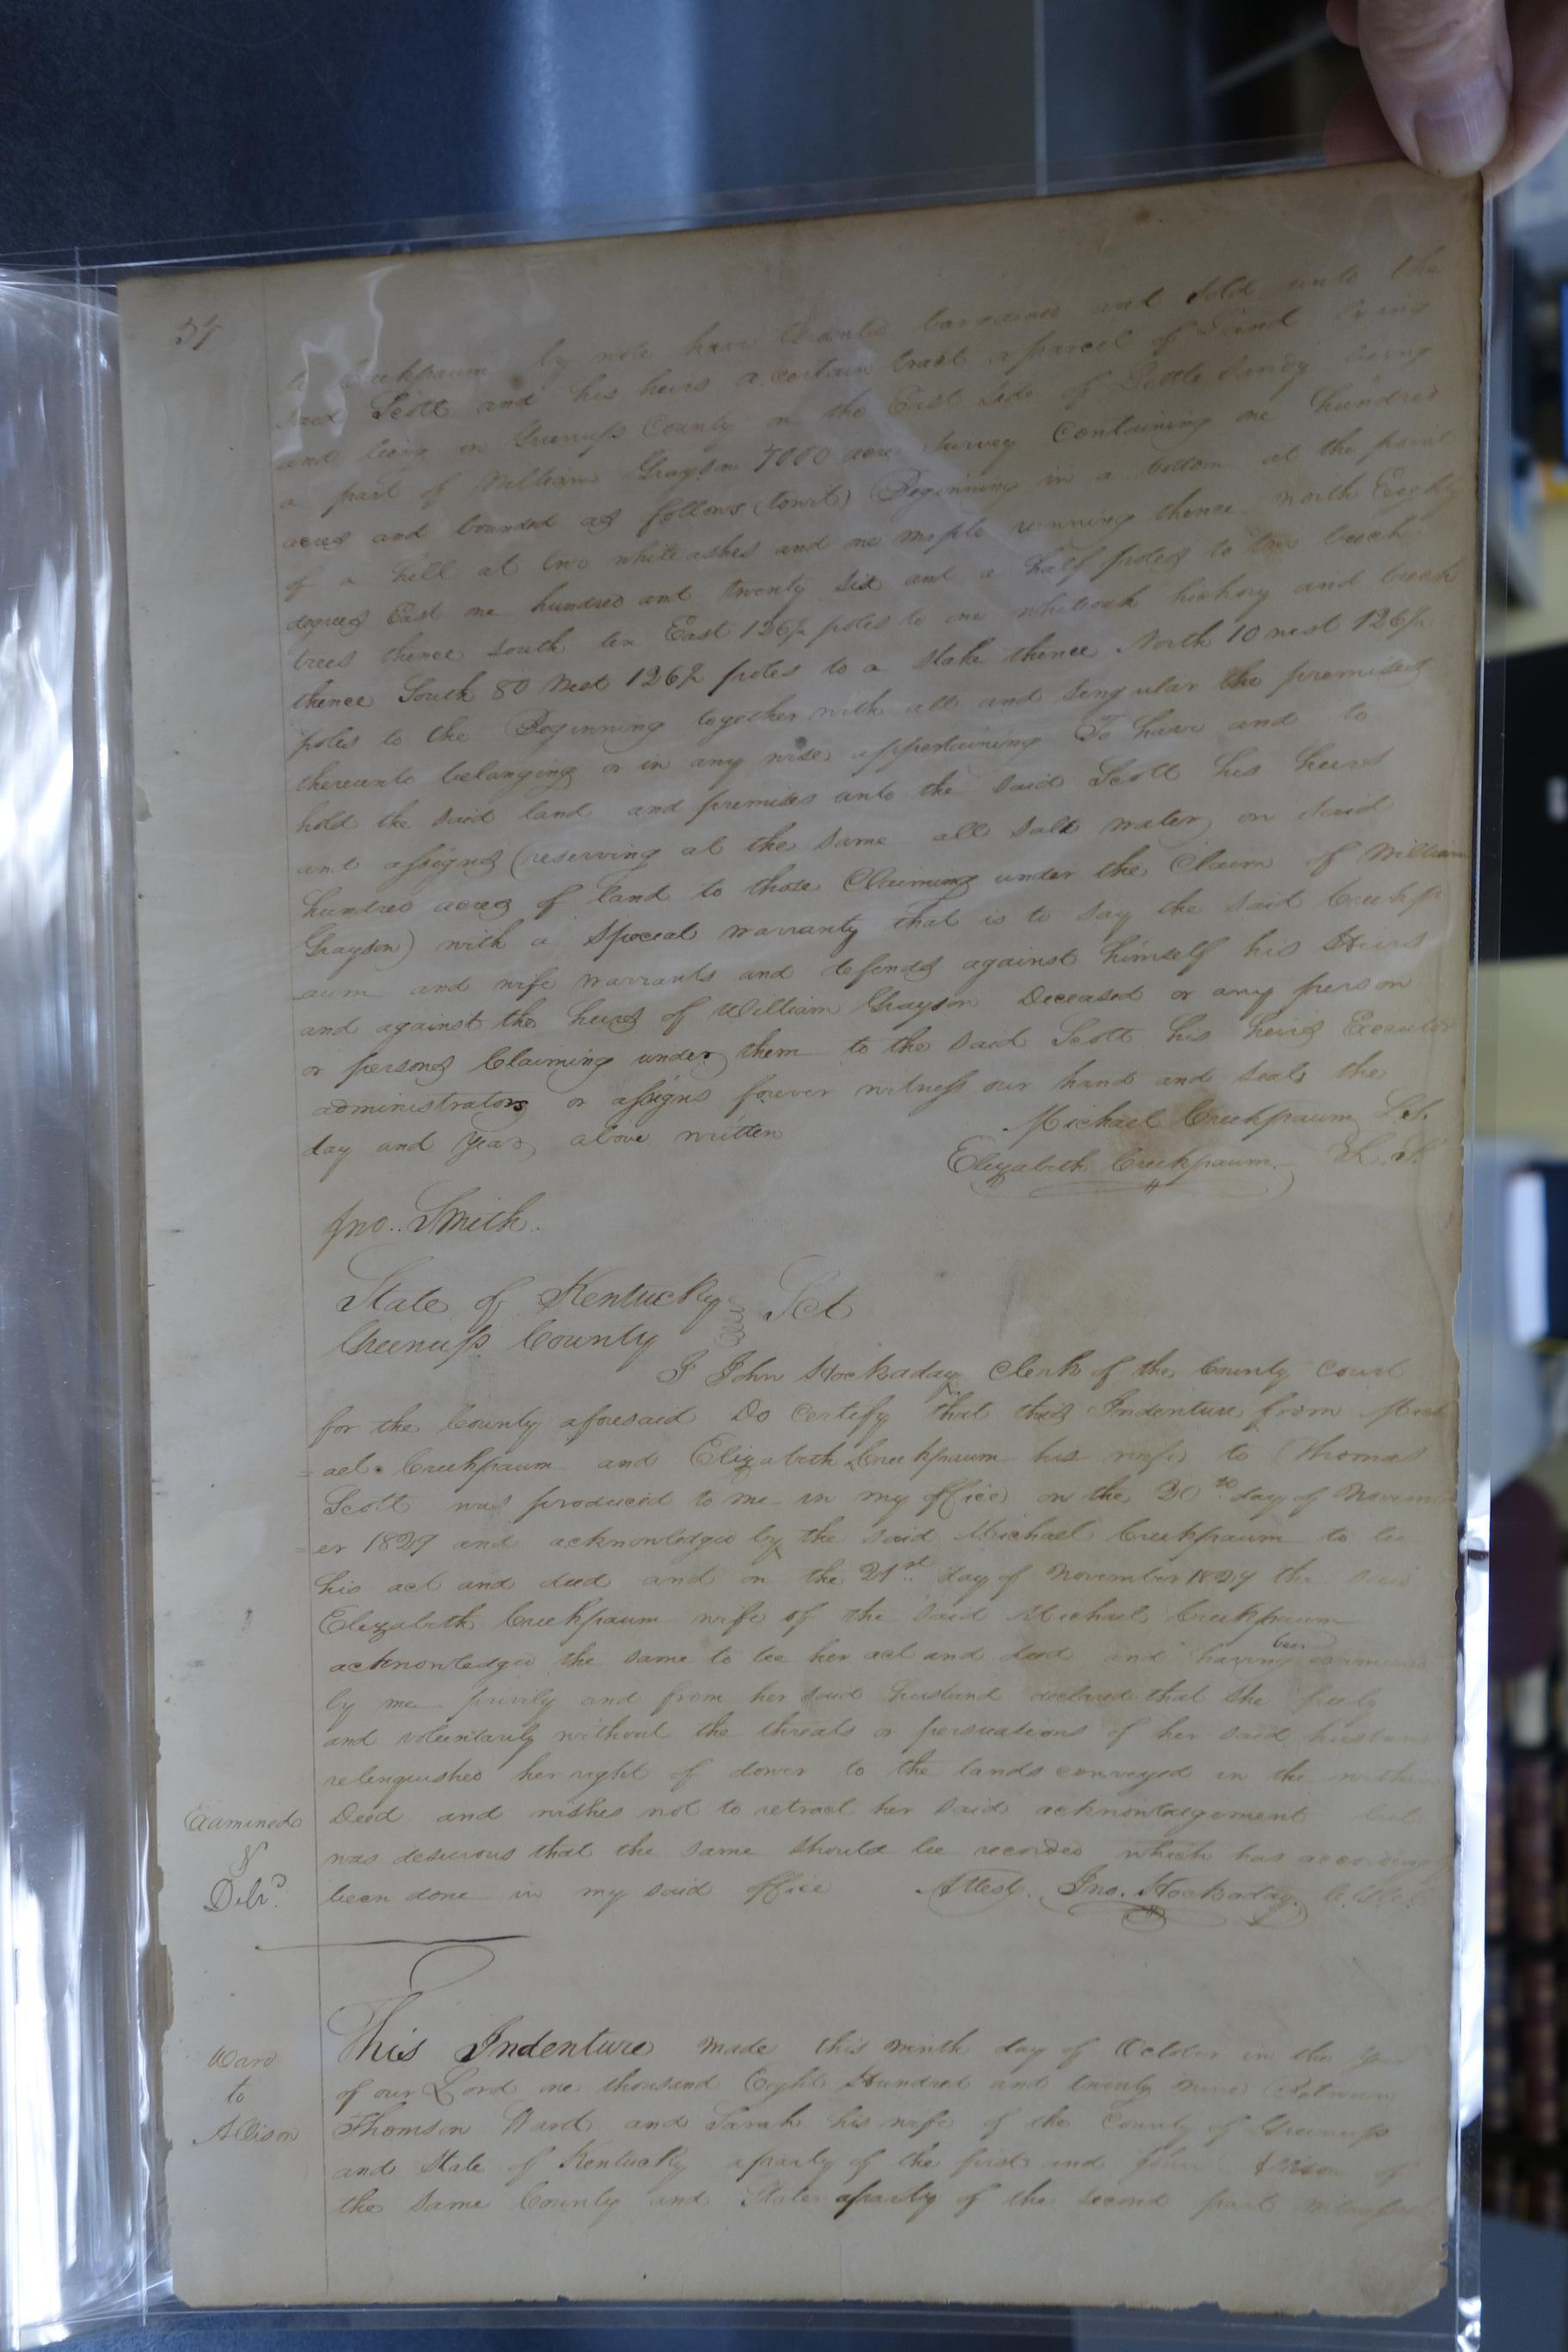 to Creekpaum by note have Granted bargained and sold unto the
said Scott and his heirs a certain tract or parcel of Land Lying
and being in Greenup County on the East Side of Little Sandy being
a part of William Grayson 7000 acre Survey Containing one hundred
acres and bounded as follows (towit) Beginning in a bottom at the point
of a hill at two white ashes and one maple running thence north Eighty
degrees East one hundred and twenty six and a half poles to two beech
trees thence south ten East 126½ poles to one whiteoak hickory and beech
thence South 80 West 126½ poles to a stake thence North 10 west 126½
poles to the Beginning together with all and singular the premises
thereunto belonging or in any wise appertaining To have and to
hold the said land and premises unto the said Scott his heirs
and assigns (reserving at the same all salt water on said
hundred acres of land to those Claiming under the Claim of William
Grayson) with a special warranty that is to say the said Creekp
aum and wife warrants and defends against himself his Heirs
and against the heirs of William Grayson Deceased or any person
or persons Claiming under them to the said Scott his heirs Executor
administrators or assigns forever witness our hand and seals the
day and year above written
Michael Creekpaum L.S.
Elizabeth Creekpaum L.S.
Jno. Smith.
State of Kentucky Sct
Greenup County
I John Hockaday Clerk of the County Court
for the County aforesaid Do Certify that this Indenture from Mich
=ael Creekpaum and Elizabeth Creekpaum his wife to Thomas
Scott was produced to me in my office on the 20th day of Novemb
=er 1829 and acknowledged by the said Michael Creekpaum to be
his act and deed and on the 21st day of November 1829 the said
Elizabeth Creekpaum wife of the said Michael Creekpaum
acknowledged the same to be her act and deed and having been examined
by me privily and from her said husband declared that she freely
and voluntarily without the threats or persuations of her said husband
relinquished her right of dower to the lands conveyed in the within
Deed and wishes not to retract her said acknowledgement but
was desirous that the same should be recorded which has accordingly
been done in my said office Attest. Jno. Hockaday. C.G.C.C
Examined
&
Deld
This Indenture made this ninth day of October in the Year
of our Lord one thousand Eight Hundred and twenty nine Between
Thomson Ward and Sarah his wife of the County of Greenup
and State of Kentucky a party of the first and Allison of
the same County and State a party of the second part witnesseth
Ward
to
Allison